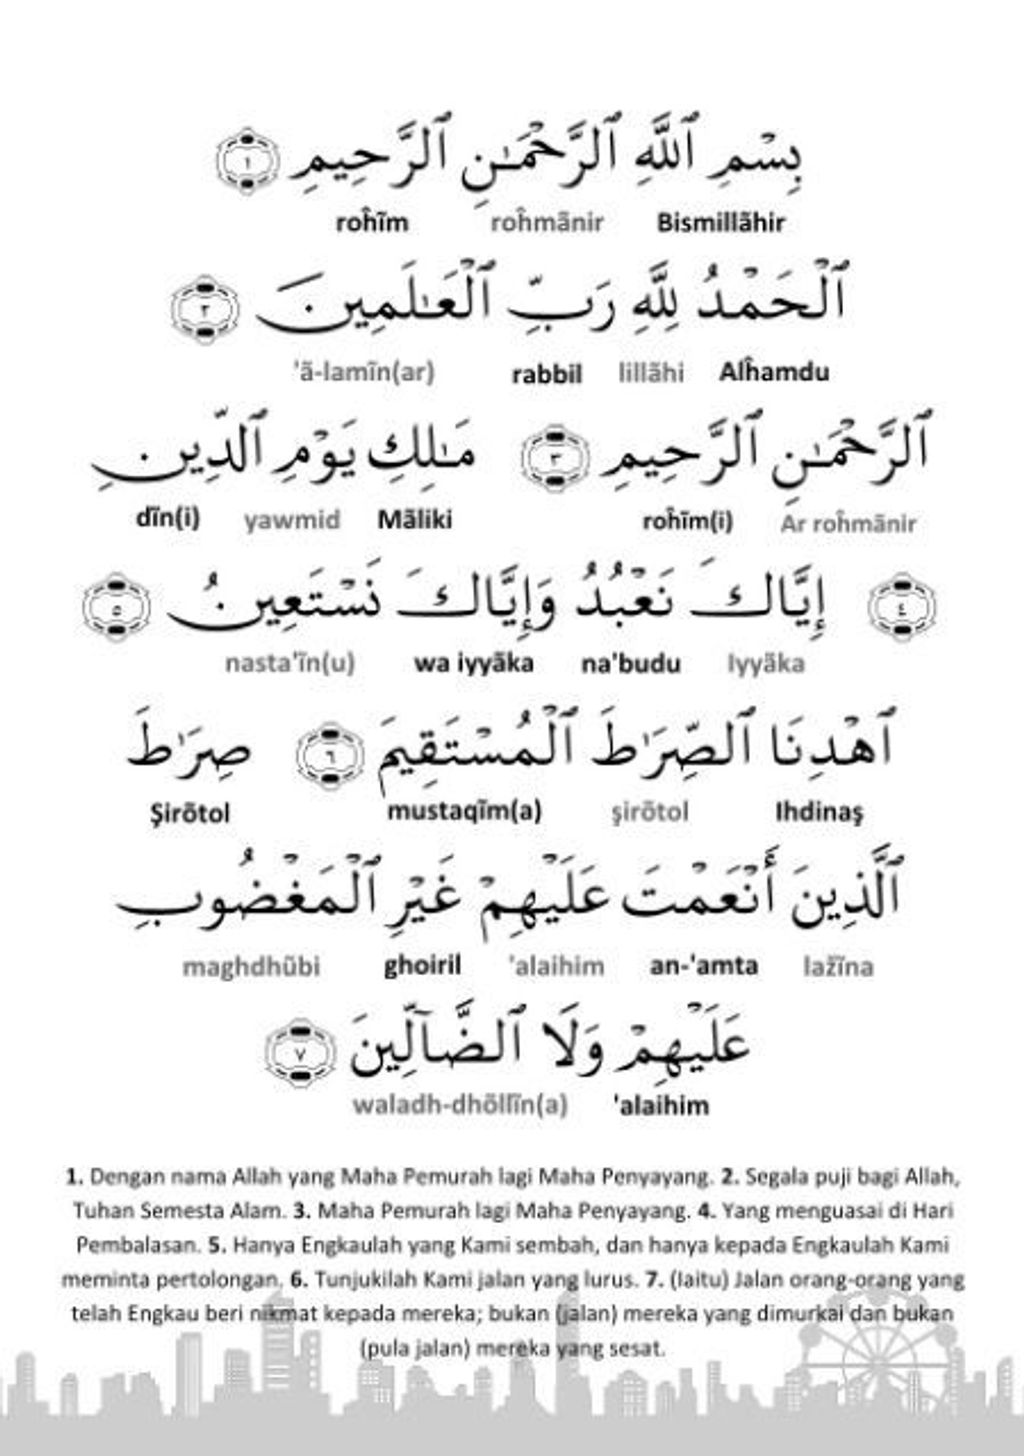 بِسْمِ ٱللَّهِ ٱلرَّحْمَـٰنِ ٱلرَّحِيمِ ١
Bismillãhir roĥmãnir roĥĩm
ٱلْحَمْدُ لِلَّهِ رَبِّ ٱلْعَـٰلَمِينَ ٢
Alĥamdu lillãhi rabbil 'ã-lamĩn(ar)
ٱلرَّحْمَـٰنِ ٱلرَّحِيمِ ٣ مَـٰلِكِ يَوْمِ ٱلدِّينِ
Ar roĥmãnir roĥĩm(i) Mãliki yawmid dĩn(i)
٤ إِيَّاكَ نَعْبُدُ وَإِيَّاكَ نَسْتَعِينُ ٥
Iyyãka na'budu wa iyyãka nasta'ĩn(u)
ٱهْدِنَا ٱلصِّرَٰطَ ٱلْمُسْتَقِيمَ ٦ صِرَٰطَ
Ihdinaş şirõtol mustaqĩm(a) Şirõtol
ٱلَّذِينَ أَنْعَمْتَ عَلَيْهِمْ غَيْرِ ٱلْمَغْضُوبِ
lažĩna an-'amta 'alaihim ghoiril maghdhũbi
عَلَيْهِمْ وَلَا ٱلضَّآلِّينَ ٧
'alaihim waladh-dhõllĩn(a)
1. Dengan nama Allah yang Maha Pemurah lagi Maha Penyayang. 2. Segala puji bagi Allah,
Tuhan Semesta Alam. 3. Maha Pemurah lagi Maha Penyayang. 4. Yang menguasai di Hari
Pembalasan. 5. Hanya Engkaulah yang Kami sembah, dan hanya kepada Engkaulah Kami
meminta pertolongan. 6. Tunjukilah Kami jalan yang lurus. 7. (Iaitu) Jalan orang-orang yang
telah Engkau beri nikmat kepada mereka; bukan (jalan) mereka yang dimurkai dan bukan
(pula jalan) mereka yang sesat.